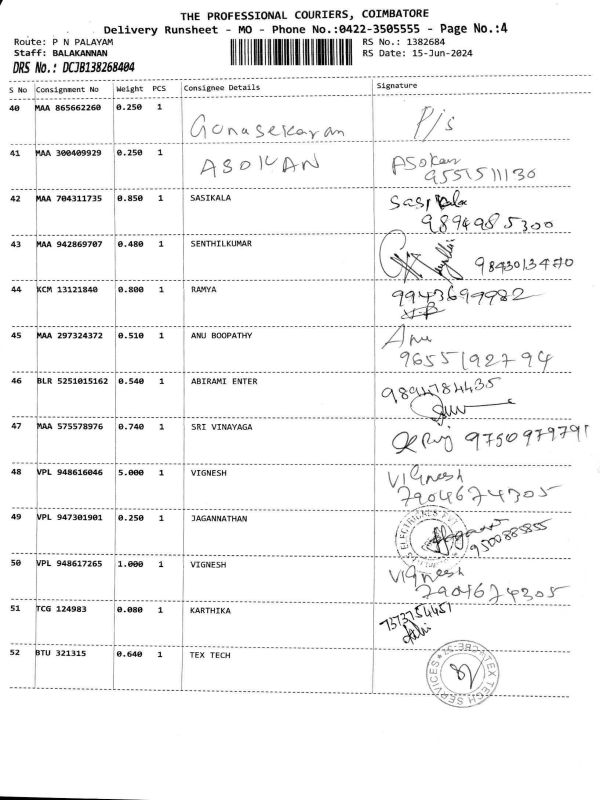 THE PROFESSIONAL COURIERS, COIMBATORE
Delivery Runsheet - MO - Phone No.:0422-3505555 - Page No.:4
Route: P N PALAYAM RS No.: 1382684
Staff: BALAKANNAN RS Date: 15-Jun-2024
DRS No.: DCJB138268404
S No Consignment No Weight PCS Consignee Details Signature
40 MAA 865662260 0.250 1 Gunasekaran P/s
41 MAA 300409929 0.250 1 ASOKAN Asokan
9551511130
42 MAA 704311735 0.850 1 SASIKALA Sasikala
9894985300
43 MAA 942869707 0.480 1 SENTHILKUMAR 9843013470
44 KCM 13121840 0.800 1 RAMYA 9943699982
45 MAA 297324372 0.510 1 ANU BOOPATHY Anu
9655192794
46 BLR 5251015162 0.540 1 ABIRAMI ENTER 9894784435
47 MAA 575578976 0.740 1 SRI VINAYAGA 9750979791
48 VPL 948616046 5.000 1 VIGNESH Vignesh
7904674305
49 VPL 947301901 0.250 1 JAGANNATHAN ELECTRICALS PVT
9500885855
50 VPL 948617265 1.000 1 VIGNESH Vignesh
7904674305
51 TCG 124983 0.080 1 KARTHIKA 7373754457
52 BTU 321315 0.640 1 TEX TECH TEX TECH SERVICES